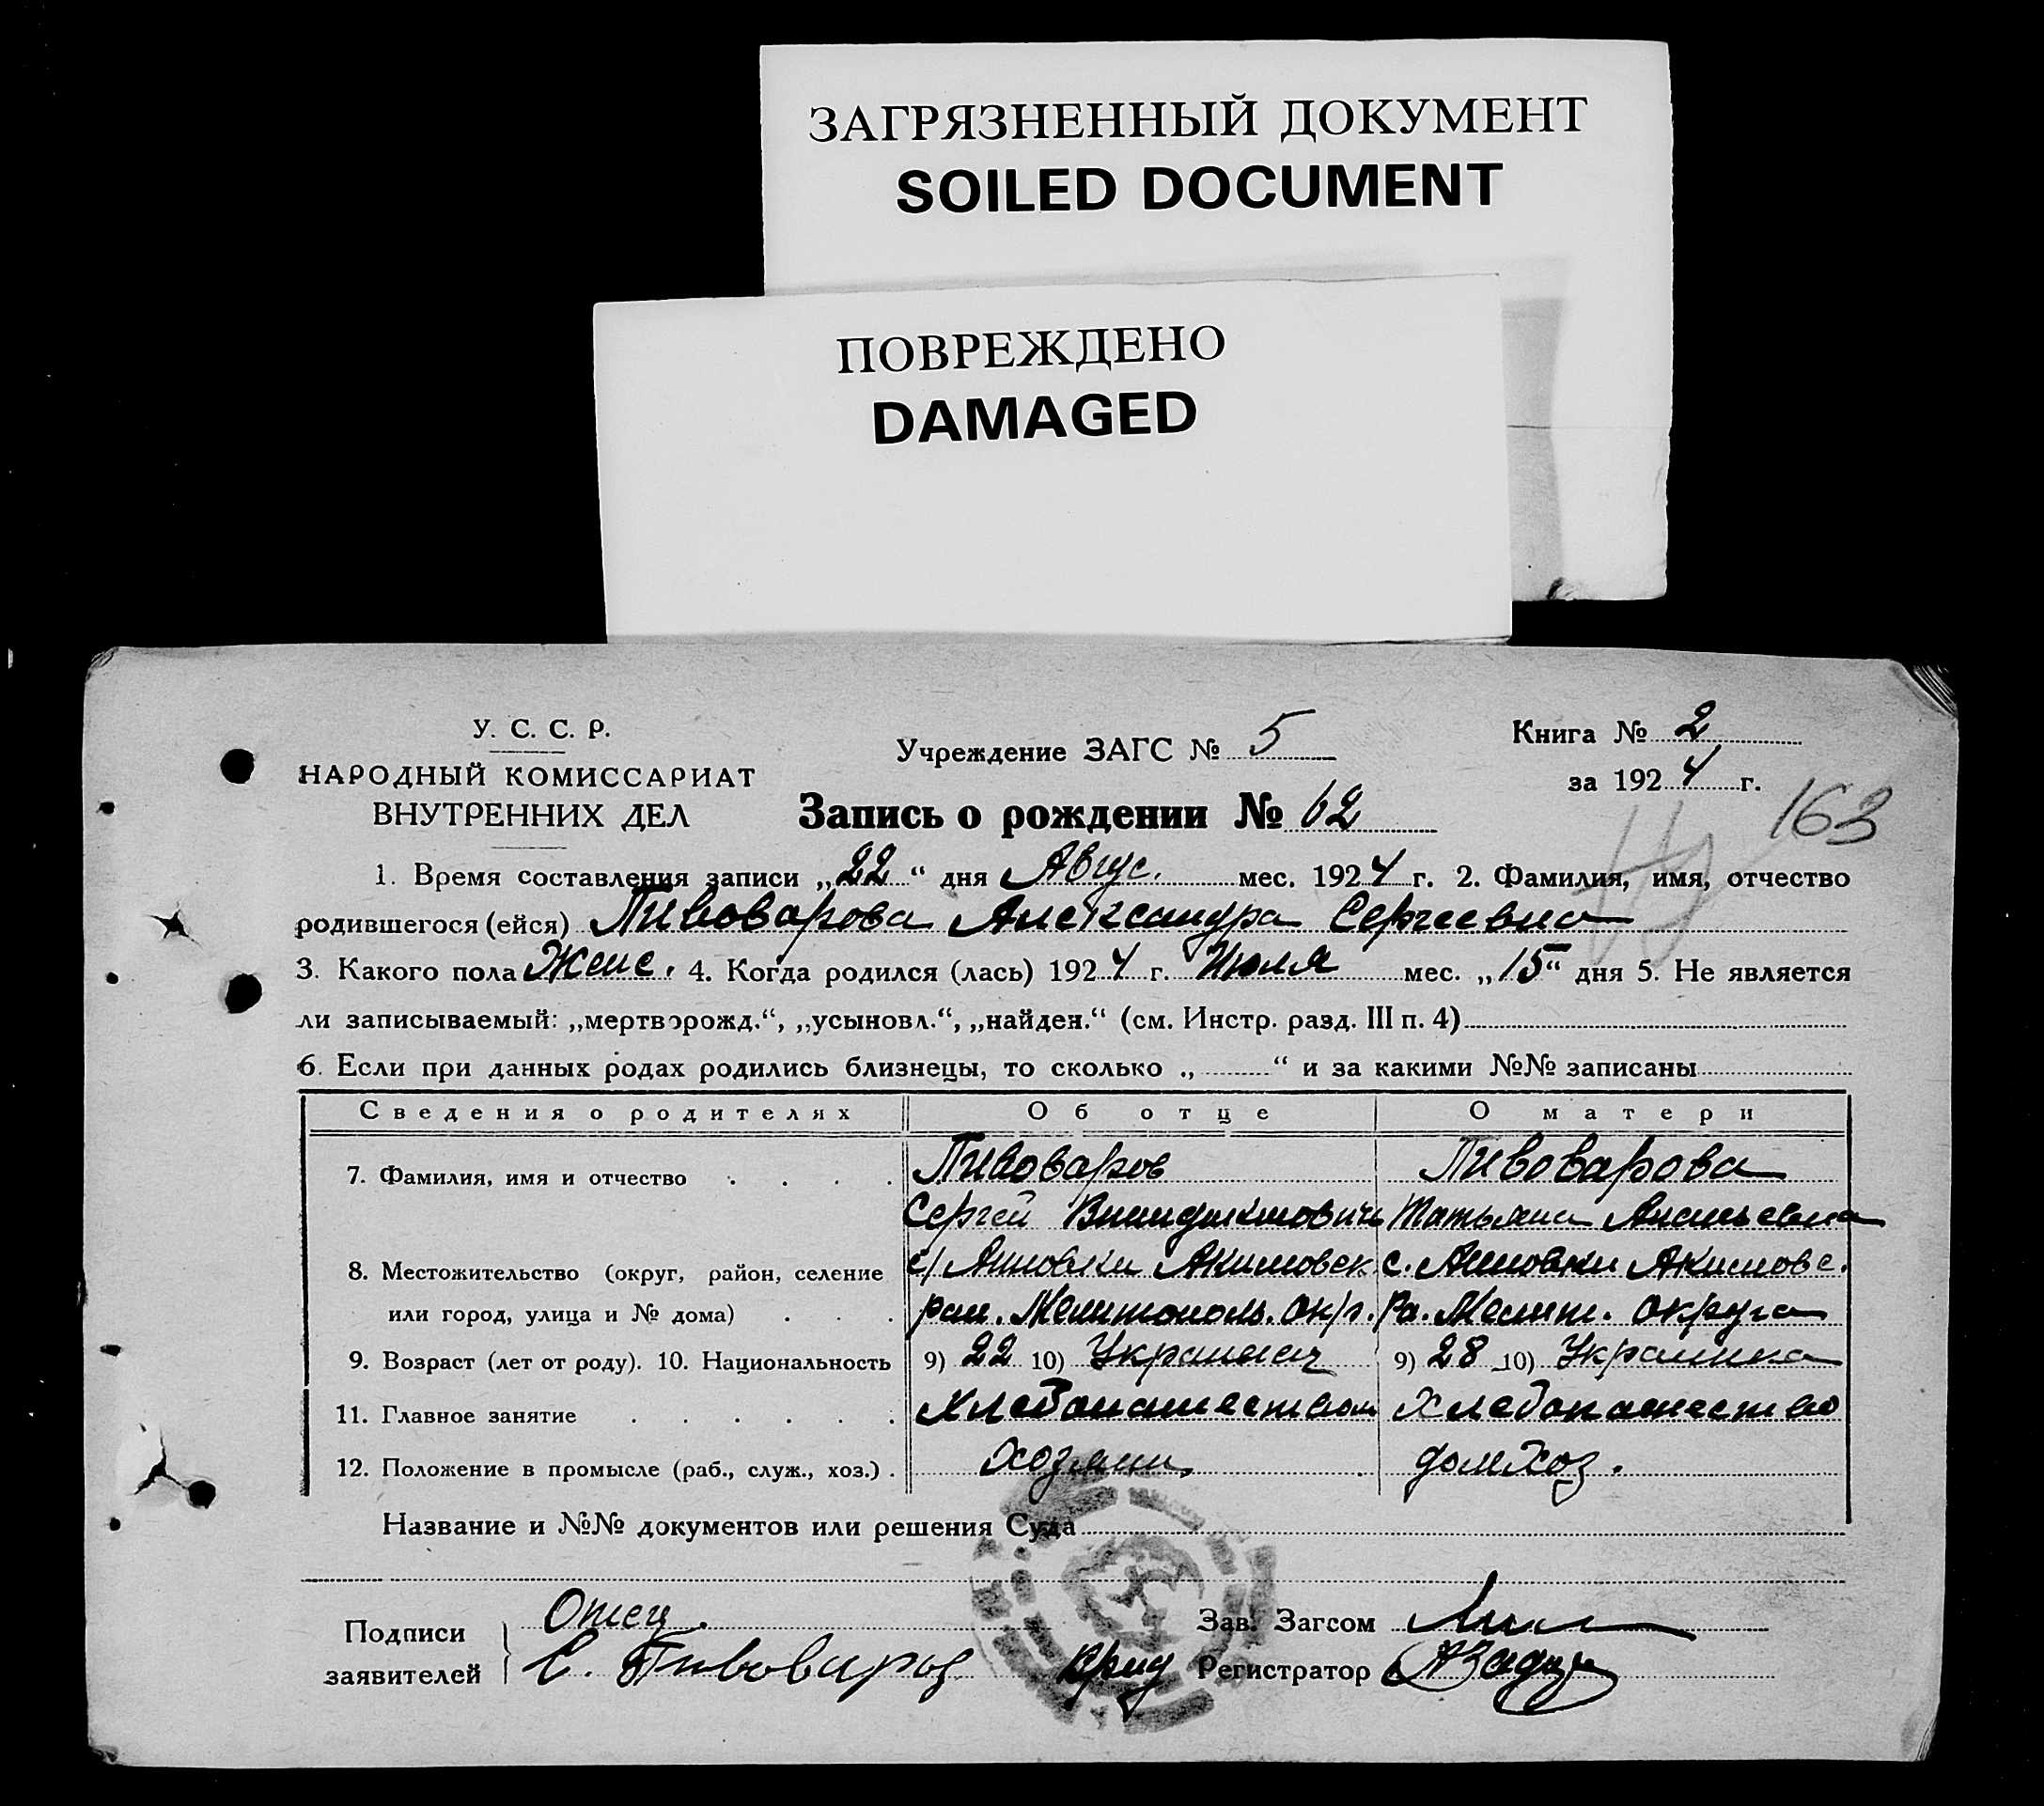 ЗАГРЯЗНЕННЫЙ ДОКУМЕНТ
SOILED DOCUMENT
ПОВРЕЖДЕНО
DAMAGED
У. С. С. Р.
НАРОДНЫЙ КОМИССАРИАТ
ВНУТРЕННИХ ДЕЛ
Учреждение ЗАГС № 5
Книга № 2
за 1924 г.
163
Запись о рождении № 62
1. Время составления записи „22“ дня Авгус. мес. 1924 г. 2. Фамилия, имя, отчество
родившегося (ейся) Пивоварова Александра Сергеевна
3. Какого пола Женс. 4. Когда родился (лась) 1924 г. Июля мес. „15“ дня 5. Не является
ли записываемый: „мертворожд.“, „усыновл.“, „найден.“ (см. Инстр. разд. III п. 4)
6. Если при данных родах родились близнецы, то сколько „ “ и за какими №№ записаны
Сведения о родителях Об отце О матери
7. Фамилия, имя и отчество Пивоваров Пивоварова
Сергей Татьяна
8. Местожительство (округ, район, селение с/ Анновки Акимовск с. Анновки Акимовс.
или город, улица и № дома) раи. Мелитополь. окр. Ра. Мелит. округа
9. Возраст (лет от роду). 10. Национальность 9) 22 10) Украинец 9) 28 10) Украинка
11. Главное занятие Хлебопашеством Хлебопашество
12. Положение в промысле (раб., служ., хоз.) Хозяин домхоз.
Название и №№ документов или решения Суда
Подписи заявителей Отец.
С. Пивоваров
Зав. Загсом
Регистратор